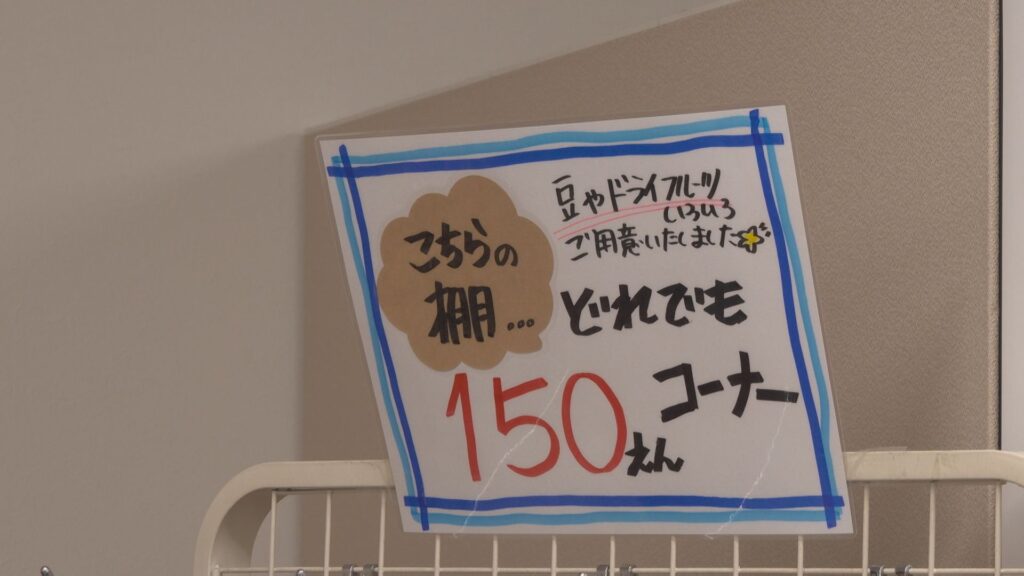 豆やドライフルーツ
いろいろ
ご用意いたしました
こちらの
棚...
どれでも
150えん
コーナー